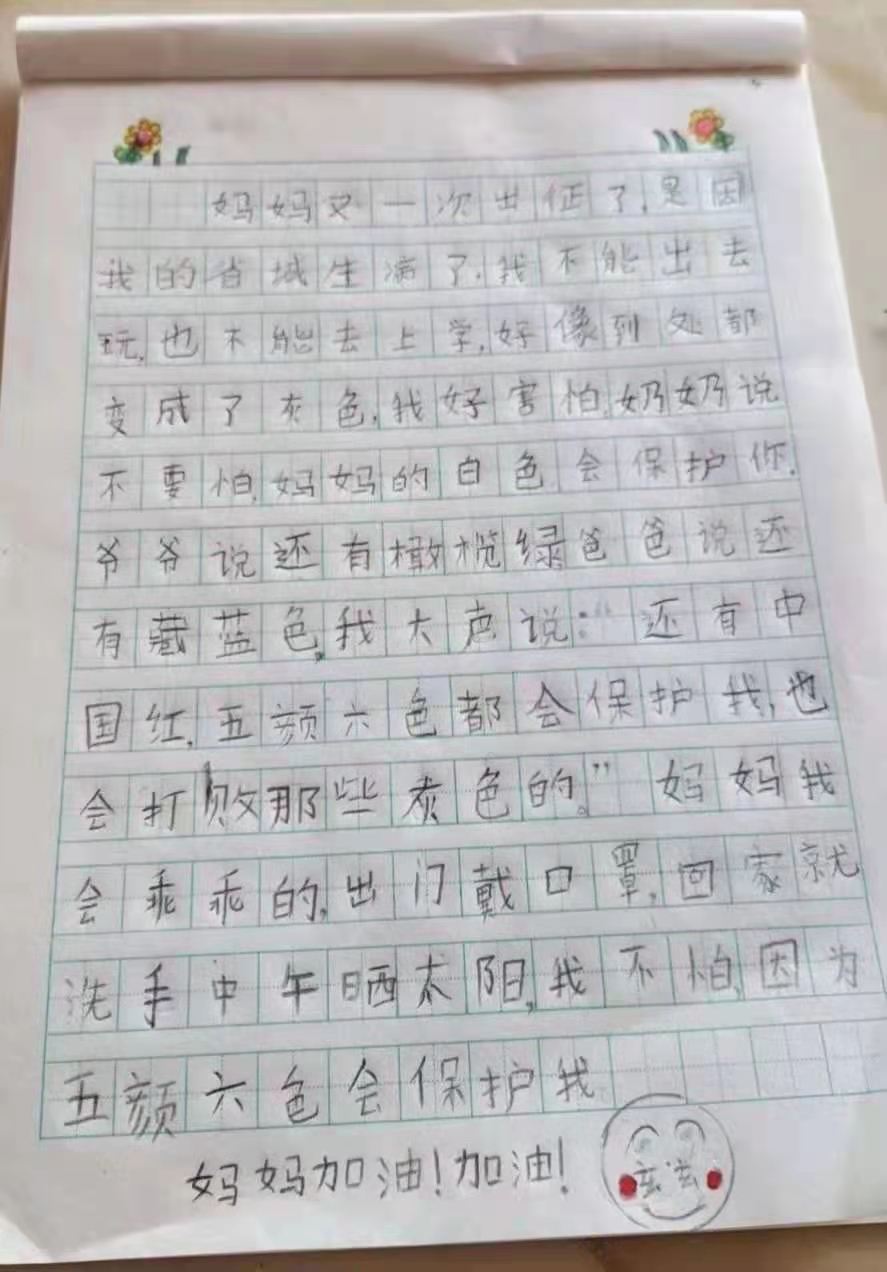 妈妈又一次出征了,是因
我的省城生病了.我不能出去
玩,也不能去上学,好像到处都
变成了灰色,我好害怕,奶奶说
不要怕,妈妈的白色会保护你.
爷爷说还有橄榄绿爸爸说还
有藏蓝色,我大声说:“还有中
国红,五颜六色都会保护我,也
会打败那些灰色的。”妈妈我
会乖乖的,出门戴口罩,回家就
洗手中午晒太阳,我不怕,因为
五颜六色会保护我
妈妈加油!加油!